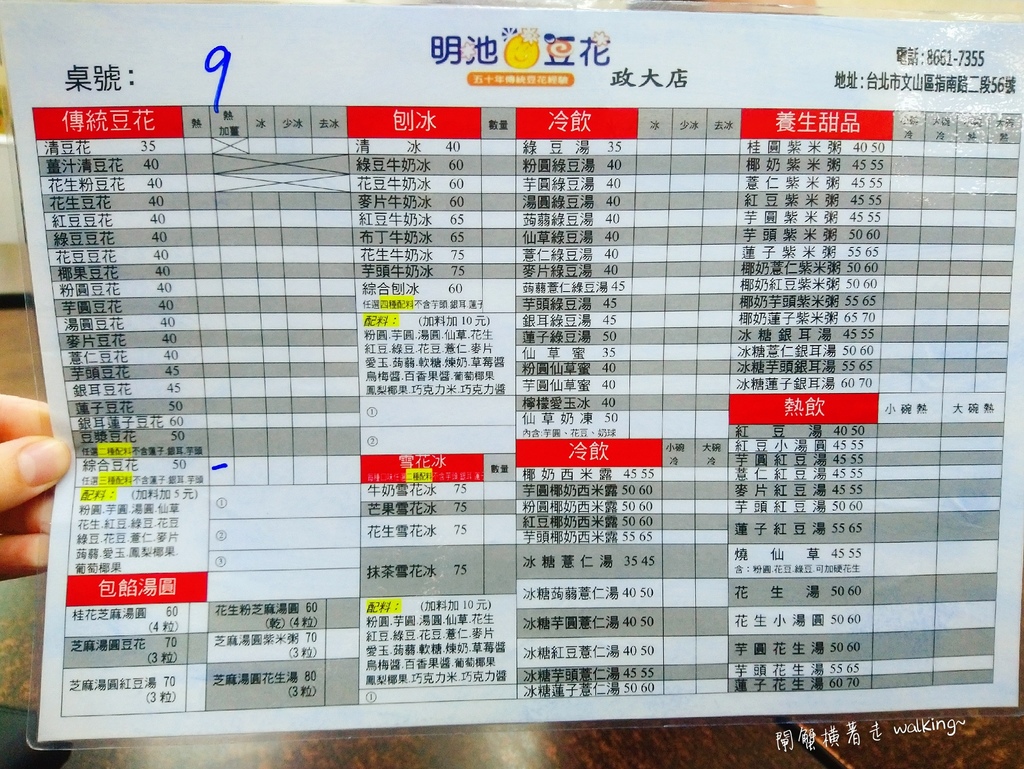 桌號：
9
明池豆花
五十年傳統豆花經驗
政大店
電話：8661-7355
地址：台北市文山區指南路二段56號
傳統豆花 熱 熱加薑 冰 少冰 去冰
清豆花 35
薑汁清豆花 40
花生粉豆花 40
花生豆花 40
紅豆豆花 40
綠豆豆花 40
花豆豆花 40
椰果豆花 40
粉圓豆花 40
芋圓豆花 40
湯圓豆花 40
麥片豆花 40
薏仁豆花 40
芋頭豆花 45
銀耳豆花 45
蓮子豆花 50
銀耳蓮子豆花 60
豆漿豆花 50
任選二種配料不含蓮子.銀耳.芋頭
綜合豆花 50
任選三種配料不含蓮子.銀耳.芋頭
配料： (加料加５元)
粉圓.芋圓.湯圓.仙草
花生.紅豆.綠豆.花豆
綠豆.花豆.薏仁.麥片
蒟蒻.愛玉.鳳梨椰果.
葡萄椰果
①
②
③
包餡湯圓
桂花芝麻湯圓 60
(4粒)
芝麻湯圓豆花 70
(3粒)
芝麻湯圓紅豆湯 70
(3粒)
花生粉芝麻湯圓 60
(乾) (4粒)
芝麻湯圓紫米粥 70
(3粒)
芝麻湯圓花生湯 80
(3粒)
刨冰 數量
清冰 40
綠豆牛奶冰 60
花豆牛奶冰 60
麥片牛奶冰 60
紅豆牛奶冰 65
布丁牛奶冰 65
花生牛奶冰 75
芋頭牛奶冰 75
綜合刨冰 60
任選四種配料不含芋頭.銀耳.蓮子
配料： (加料加10元)
粉圓.芋圓.湯圓.仙草.花生
紅豆.綠豆.花豆.薏仁.麥片
愛玉.蒟蒻.軟糖.煉奶.草莓醬
烏梅醬.百香果醬.葡萄椰果
鳳梨椰果.巧克力米.巧克力醬
①
②
雪花冰 數量
牛奶雪花冰 75
芒果雪花冰 75
花生雪花冰 75
抹茶雪花冰 75
配料： (加料加10元)
粉圓.芋圓.湯圓.仙草.花生
紅豆.綠豆.花豆.薏仁.麥片
愛玉.蒟蒻.軟糖.煉奶.草莓醬
烏梅醬.百香果醬.葡萄椰果
鳳梨椰果.巧克力米.巧克力醬
①
冷飲 冰 少冰 去冰
綠豆湯 35
粉圓綠豆湯 40
芋圓綠豆湯 40
湯圓綠豆湯 40
蒟蒻綠豆湯 40
仙草綠豆湯 40
薏仁綠豆湯 40
麥片綠豆湯 40
蒟蒻薏仁綠豆湯 45
芋頭綠豆湯 45
銀耳綠豆湯 45
蓮子綠豆湯 50
仙草蜜 35
粉圓仙草蜜 40
芋圓仙草蜜 40
檸檬愛玉冰 40
仙草奶凍 50
內含:芋圓、花豆、奶球
冷飲 小碗冷 大碗冷
椰奶西米露 45 55
芋圓椰奶西米露 50 60
粉圓椰奶西米露 50 60
紅豆椰奶西米露 50 60
芋頭椰奶西米露 55 65
冰糖薏仁湯 35 45
冰糖蒟蒻薏仁湯 40 50
冰糖芋圓薏仁湯 40 50
冰糖紅豆薏仁湯 40 50
冰糖芋頭薏仁湯 45 55
冰糖蓮子薏仁湯 50 60
養生甜品 小碗冷 大碗冷
桂圓紫米粥 40 50
椰奶紫米粥 45 55
薏仁紫米粥 45 55
紅豆紫米粥 45 55
芋圓紫米粥 45 55
芋頭紫米粥 50 60
蓮子紫米粥 55 65
椰奶薏仁紫米粥 50 60
椰奶紅豆紫米粥 50 60
椰奶芋頭紫米粥 55 65
椰奶蓮子紫米粥 65 70
冰糖銀耳湯 45 55
冰糖薏仁銀耳湯 50 60
冰糖芋頭銀耳湯 55 65
冰糖蓮子銀耳湯 60 70
熱飲 小碗熱 大碗熱
紅豆湯 40 50
紅豆小湯圓 45 55
芋圓紅豆湯 45 55
薏仁紅豆湯 45 55
麥片紅豆湯 45 55
芋頭紅豆湯 50 60
蓮子紅豆湯 55 65
燒仙草 45 55
含：粉圓.花豆.綠豆.可加硬花生
花生湯 50 60
花生小湯圓 50 60
芋圓花生湯 50 60
芋頭花生湯 55 65
蓮子花生湯 60 70
鬧蟹橫著走 walking~